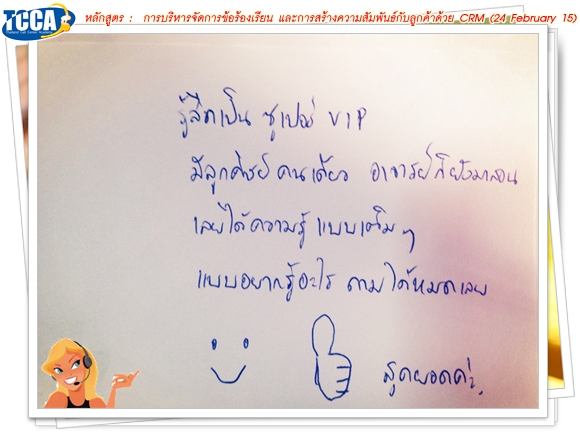 TCCA
Thailand Call Center Academy
หลักสูตร : การบริหารจัดการข้อร้องเรียน และการสร้างความสัมพันธ์กับลูกค้าด้วย CRM (24 February 15)
รู้สึกเป็น ซูเปอร์ VIP
มีลูกศิษย์คนเดียว อาจารย์ก็ยังมาสอน
เลยได้ความรู้ แบบเต็มๆ
แบบอยากรู้อะไร ถามได้หมดเลย
สุดยอดค่ะ